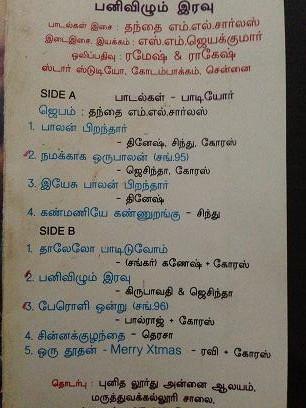 பனிவிழும் இரவு
பாடல்கள் இசை : தந்தை எம்.எல்.சார்லஸ்
இடைஇசை, இயக்கம் : எஸ்.எம்.ஜெயக்குமார்
ஒலிப்பதிவு : ரமேஷ் & ராகேஷ்
ஸ்டார் ஸ்டுடியோ, கோடம்பாக்கம், சென்னை
SIDE A பாடல்கள் - பாடியோர்
ஜெபம் : தந்தை எம்.எல்.சார்லஸ்
1. பாலன் பிறந்தார்
- தினேஷ், சிந்து, கோரஸ்
2. நமக்காக ஒருபாலன் (சங்.95)
- ஜெசிந்தா, கோரஸ்
3. இயேசு பாலன் பிறந்தார்
- தினேஷ்
4. கண்மணியே கண்ணுறங்கு - சிந்து
SIDE B
1. தாலேலோ பாடிடுவோம்
- (சங்கர்) கணேஷ் + கோரஸ்
2. பனிவிழும் இரவு
- கிருபாவதி & ஜெசிந்தா
3. பேரொளி ஒன்று (சங்.96)
- பால்ராஜ் + கோரஸ்
4. சின்னக்குழந்தை - தெரசா
5. ஒரு தூதன் - Merry Xtmas - ரவி + கோரஸ்
தொடர்பு : புனித லூர்து அன்னை ஆலயம்,
மருத்துவக்கல்லூரி சாலை,